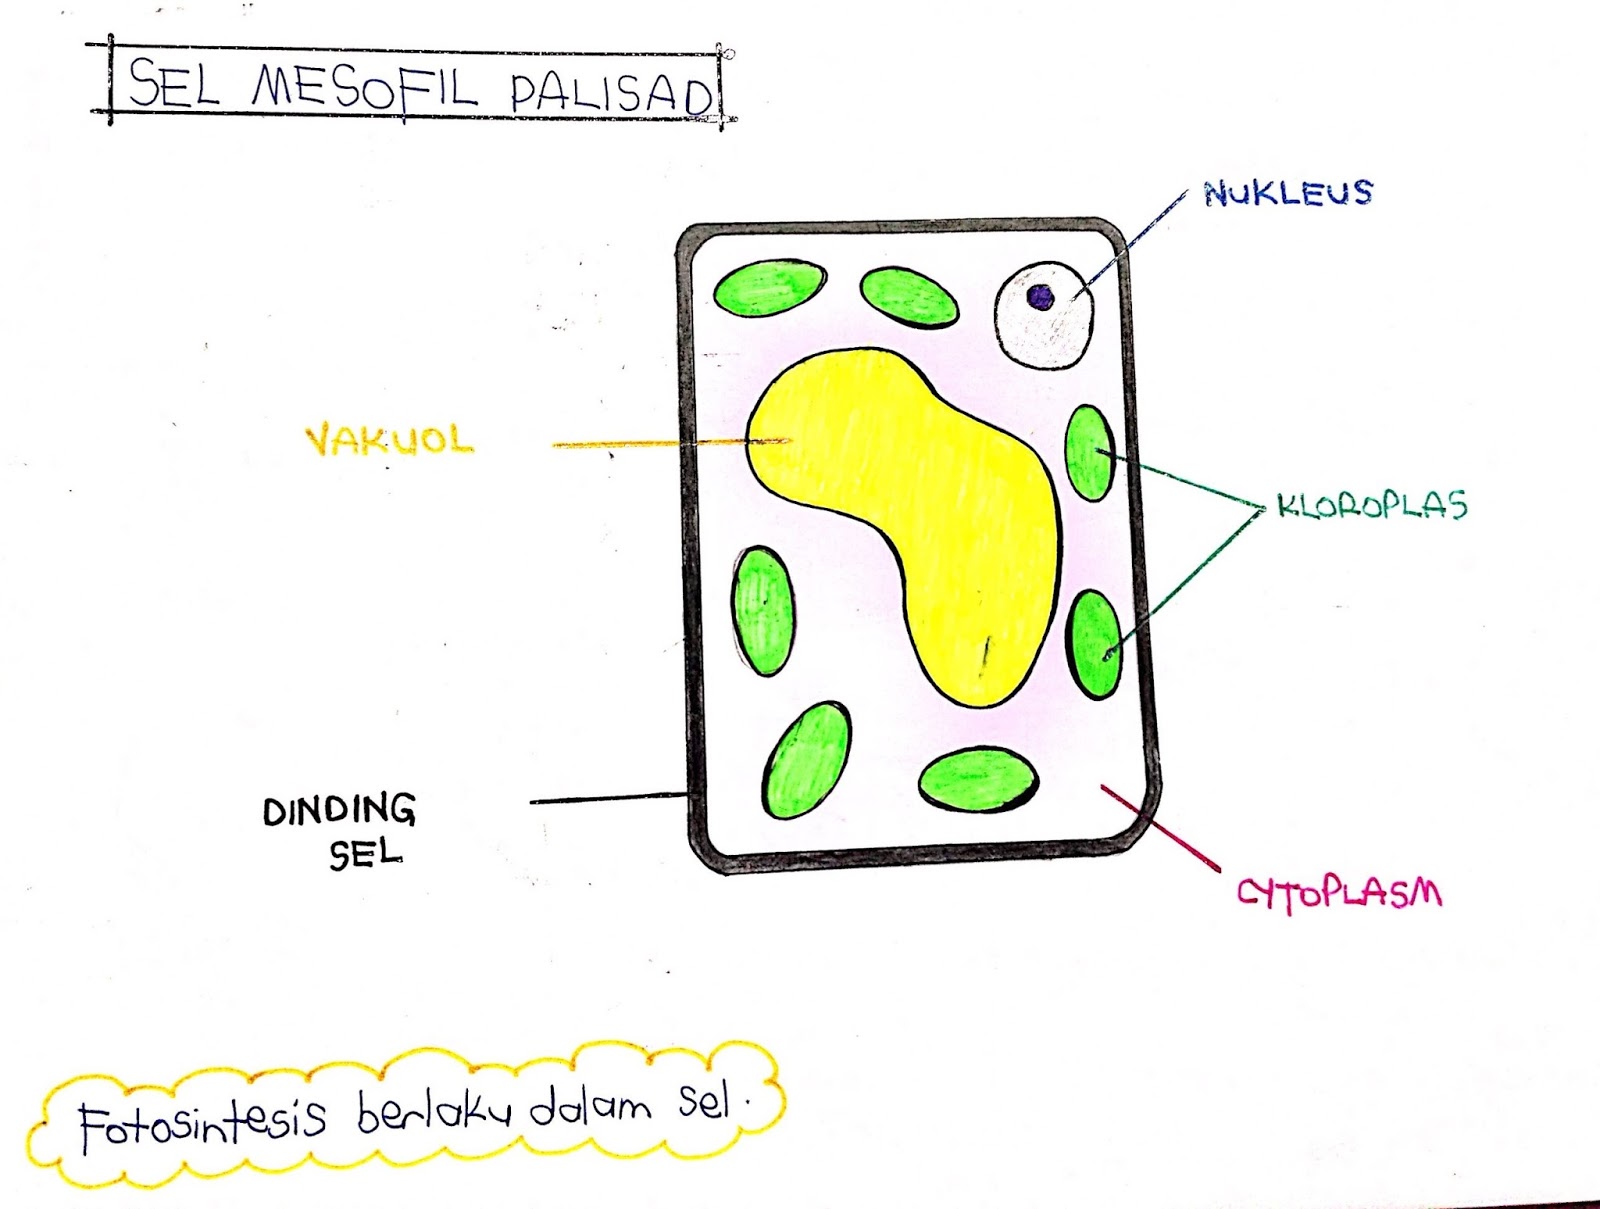 SEL MESOFIL PALISAD
NUKLEUS
VAKUOL
KLOROPLAS
DINDING
SEL
CYTOPLASM
Fotosintesis berlaku dalam sel.